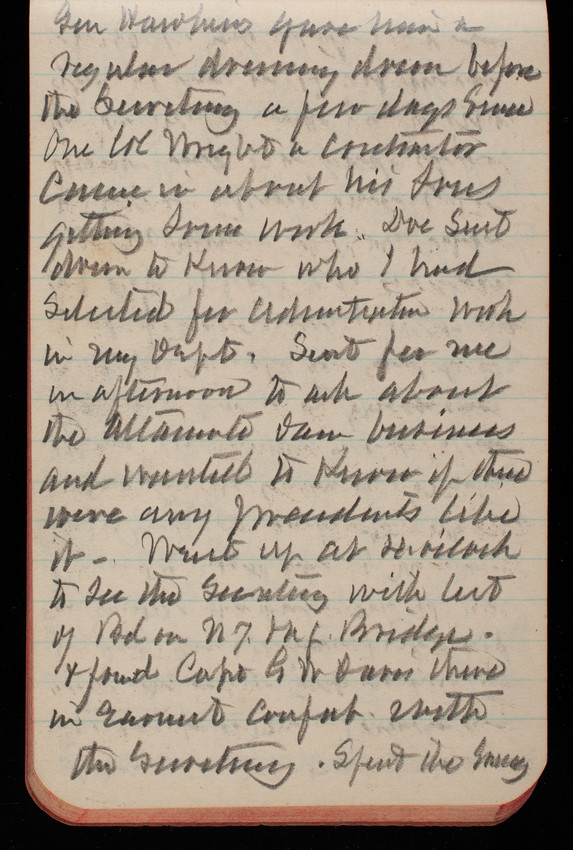 Gen Hawkins gave him a
regular dressing down before
the Secretary a few days since
One Wright a contractor
Came in about his sons
getting some work. Doe sent
down to Know who I had
Selected for administration work
in my Dept. Sent for me
in afternoon to ask about
the Altamont dam business
and wanted to Know if there
were any precedents like
it - Went up at
to see the Secretary with list
of Bd on N.Y. & N.J. Bridge.
& found Capt G W Davis there
in earnest confab with
the Secretary. Spent the